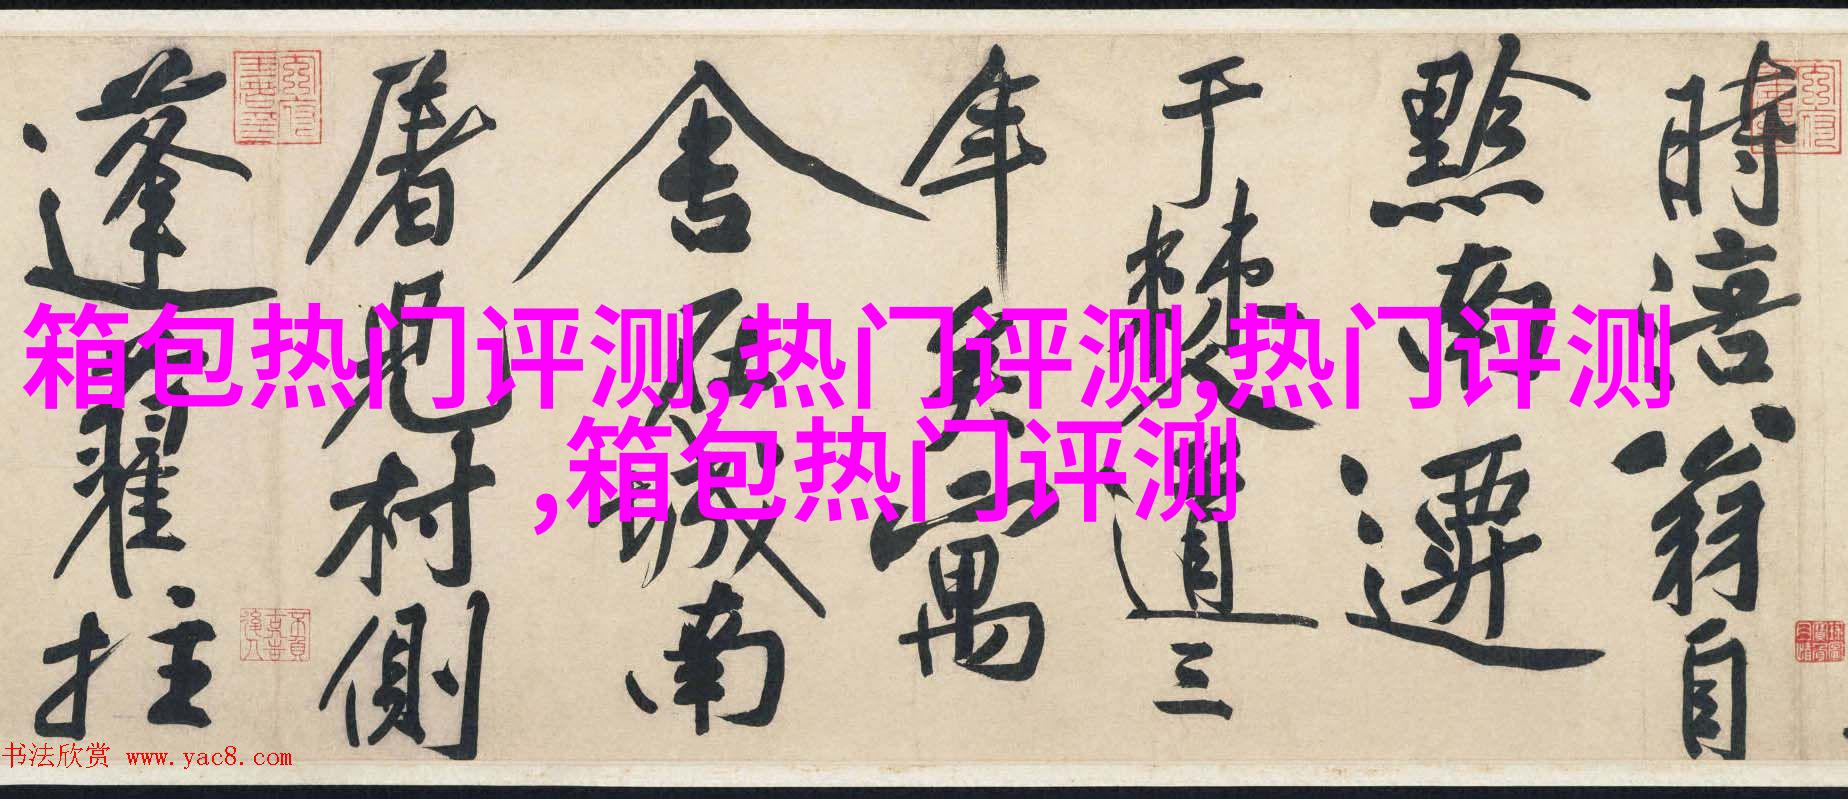 時涪翁自
黔南遷
于僰道三
年矣寓
舍在城南
屠兒村側
蓬藋拄
箱包热门评测,热门评测,热门评测
,箱包热门评测
书法欣赏 www.yac8.com